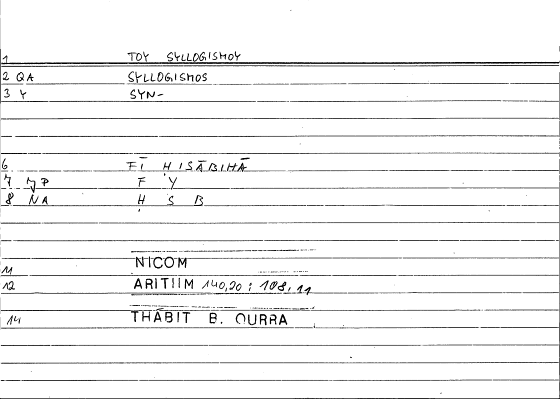 1 TOY SYLLOGISMOY
2 QA SYLLOGISMOS
3 Y SYN-
6 FĪ ḤISĀBIHĀ
7 JP F Y
8 NA Ḥ S B
11 NICOM
12 ARITIIM 140,20 : 108,11
14 THĀBIT B. QURRA